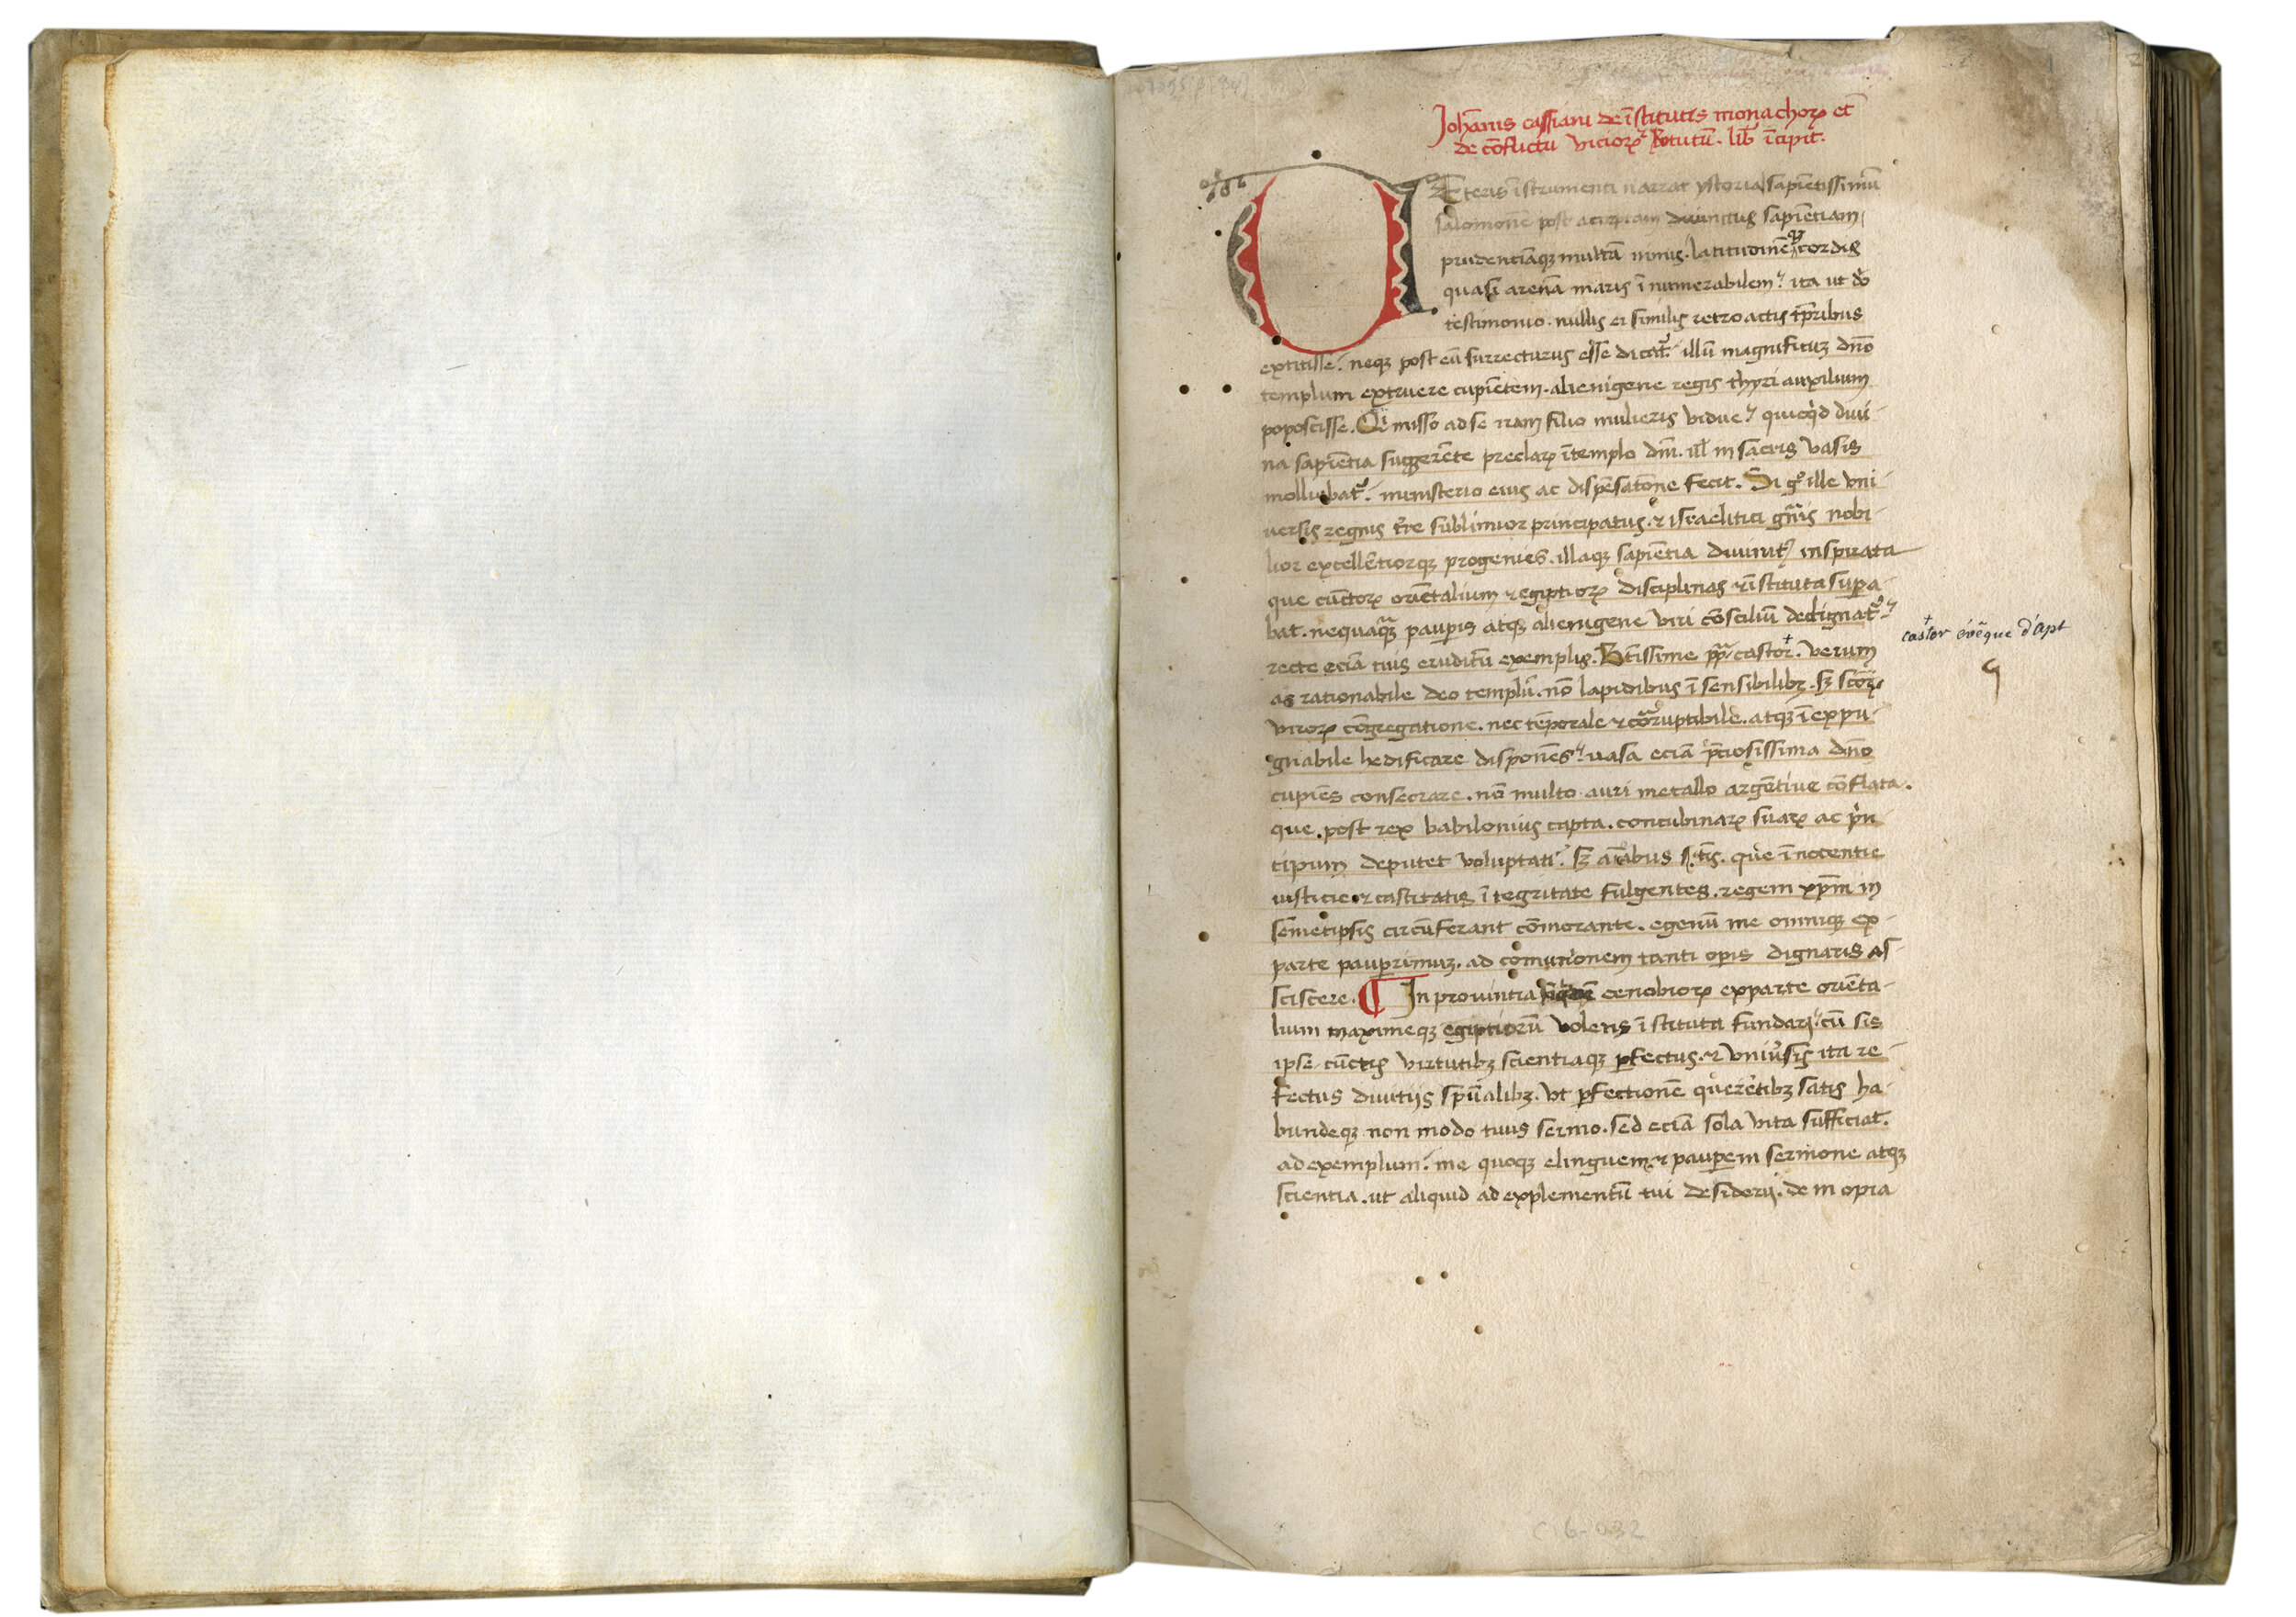 Joh̄anis cassiani de īstitutis monachoꝝ et
de cōflictu vicioꝝ ⁊ v̓tutū. lib̄ īcipit.
VEteris īstrumenti narrat ystoria sapiētissimū
salomonē post acceptam divinitus sapiētiam
prudentiāqꝫ multā nimis. latitudinē qꝫ cordis
quasi arenā maris īnumerabilem. ita ut dn̄o
testimonio. nullus ei similis retroactis tp̄ribus
extitisse. neqꝫ post eū surrecturus esse dicat᷑. illū magnificuꝫ dn̄o
templum extruere cupiētem. alienigene regis thyri auxilium
poposcisse. Qi misso ad se iram filio mulieris vidue. quicqͥd divi-
na sapiētia suggerēte preclaꝝ ī templo dn̄i. ul̄ in sacris vasis
molliebat᷑. ministerio eius ac dispēsatōne fecit. Si gͦ ille vni-
versis regnis t̄re sublimior principatus. ⁊ israelitici gn̄is nobi-
lior excellētiorqꝫ progenies. illaqꝫ sapiētia divinit᷑ inspirata
que cūctoꝝ oriētalium ⁊ egiptioꝝ disciplinas ⁊ īstituta supera-
bat. nequaqꝫ paup̄is atqꝫ alienigene viri cōscilīū dedignat᷑.
castor évêque d'Apt
recte eciā tuis eruditū exemplis. Bt̄issime pp̄a castor. verum
ac rationabile deo templū. nō lapidibus īsensibilibꝫ. sꝫ sc̄oꝝ
viroꝝ cōgregatione. nec tēporale ⁊ corruptibile. atqꝫ īexpu-
gnabile hedificare disponēs. vasa eciā p̄ciosissima dn̄o
cupiēs consecrare. nō multo auri metallo argētive cōflata.
que post rex babilonius capta. concubinaꝝ suaꝝ ac pͥn
cipum deputet voluptati. sꝫ aīabus sc̄tis. que īnocentie
iusticie ⁊ castitatis ītegritate fulgentes. regem xp̄m in
semetipsis circūferant cōmorante. egenū me omniqꝫ ex
parte paup̄rimuꝫ. ad comunionem tanti op̄is dignaris as-
sciscere. ¶ In provintia cenobioꝝ ex parte oriēta-
lium maximeqꝫ egiptiorū volens īstituta fundari. cū sis
ipse cūctis virtutibꝫ scientiaqꝫ ꝑfectus. ⁊ univ̓sis ita re-
fectus divitiis spūalibꝫ. ut ꝑfectionē querētibꝫ satis ha-
bundeqꝫ non modo tuus sermo. sed eciā sola vita sufficiat.
ad exemplum. me quoqꝫ elinguem ⁊ pauꝑem sermone atqꝫ
scientia. ut aliquid ad explementū tui desiderij. de inopia
C16-032